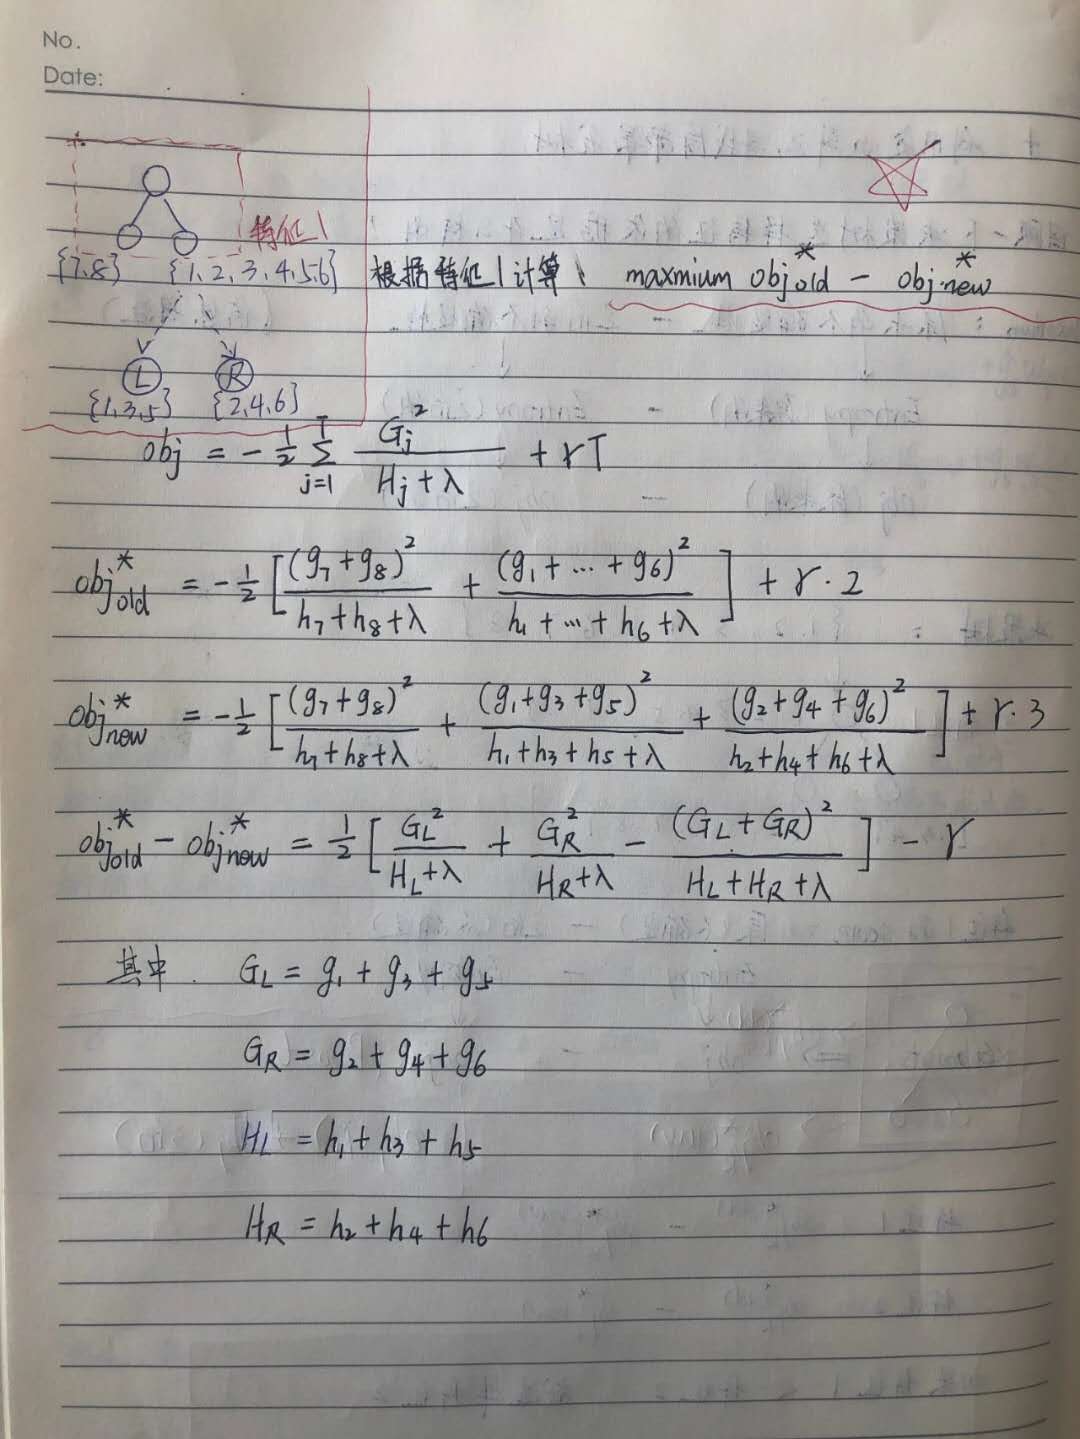 No.
Date:
特征1
{7,8} {1,2,3,4,5,6} 根据特征1计算、 maxmium obj*old − obj*new
L R
{1,3,5} {2,4,6}
obj = -1/2 Σ_{j=1}^{T} G_j^2 / (H_j + λ) + γT
obj*old = -1/2 [ (g7+g8)^2 / (h7+h8+λ) + (g1+…+g6)^2 / (h1+…+h6+λ) ] + γ·2
obj*new = -1/2 [ (g7+g8)^2 / (h7+h8+λ) + (g1+g3+g5)^2 / (h1+h3+h5+λ) + (g2+g4+g6)^2 / (h2+h4+h6+λ) ] + γ·3
obj*old − obj*new = 1/2 [ GL^2 / (HL+λ) + GR^2 / (HR+λ) − (GL+GR)^2 / (HL+HR+λ) ] − γ
其中. GL = g1 + g3 + g5
GR = g2 + g4 + g6
HL = h1 + h3 + h5
HR = h2 + h4 + h6